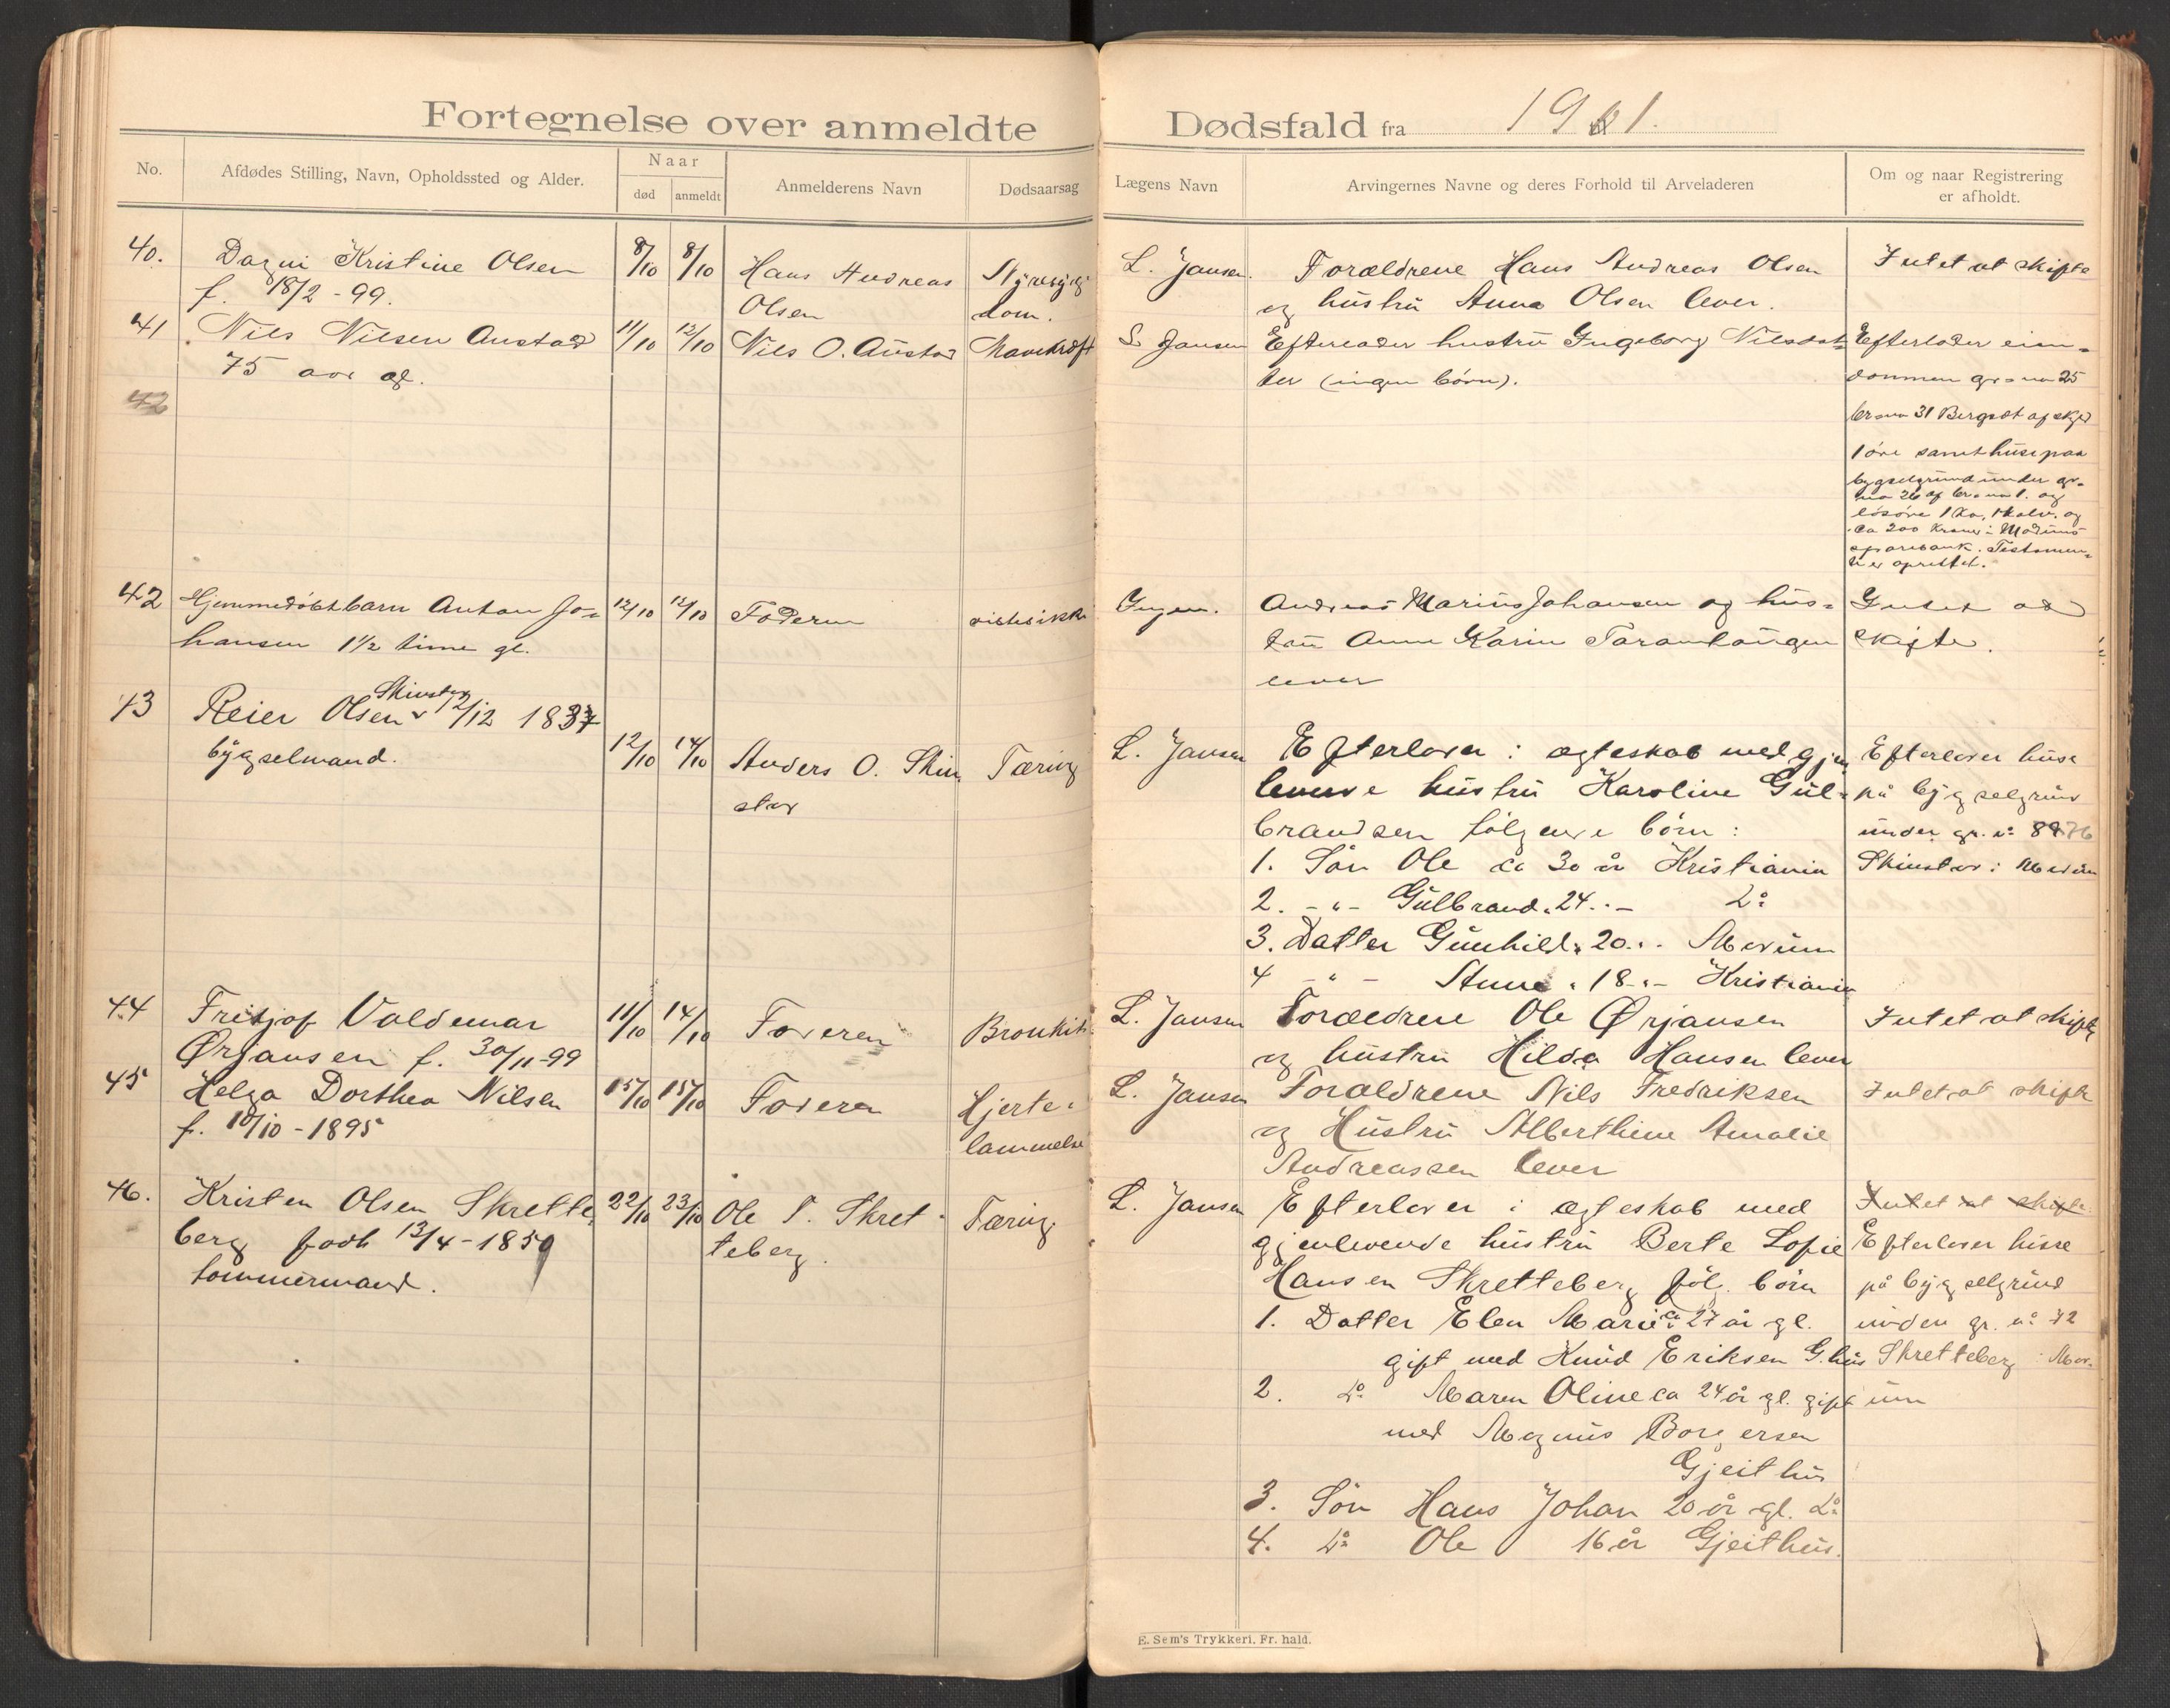 Fortegnelse over anmeldte Dødsfald fra 1901.
No.
Afdødes Stilling, Navn, Opholdssted og Alder.
Naar
død
anmeldt
Anmelderens Navn
Dødsaarsag
Lægens Navn
Arvingernes Navne og deres Forhold til Arveladeren
Om og naar Registrering
er afholdt.
40. Dagni Kristine Olsen 8/10 8/10 Hans Andreas
f. 18/2-99. Olsen
dom.
L. Jansen. Forældrene Hans Andreas Olsen
og hustru Anna Olsen lever.
Intet at skifte
41 Nils Nilsen Austad 11/10 12/10 Nils O. Austad Mavekræft
75 aar gl.
L Jansen Efterlader hustru Ingeborg Nilsdat
ter (ingen børn).
Efterlader eien=
dommen gr=no 25
br=no 31 Bergset af skyld
1 øre samt huse paa
bygselgrund under gr=
no 26 af br=no 1. og
løsøre 1 ko, 1 kalv. og
ca 200 kroner i Modums
sparebank. Testamen=
te er oprettet.
42
42 Hjemmedøbt barn Anton Jo= 12/10 12/10 Faderen vides ikke
hansen 1½ time gl.
Ingen. Andreas Marius Johansen og hus=
tru Anne Karin
lever
Intet at
skifte.
43 Reier Olsen Skinstad 2/12 1837
bygselmand.
12/10 14/10 Anders O. Skin Tæring
stad
L. Jansen Efterlader i ægteskab med gjen
levende hustru Karoline Gul=
brandsen følgende børn:
1. Søn Ole ca 30 år Kristiania
2. -"- Gulbrand " 24 " - Do
3. Datter Gunhild " 20 " - Modum
4 -"- Anna " 18 " - Kristiania
Efterlader huse
på bygselgrund
under gr. no 8976
Skinstad i Modum
44 Fritjof Valdemar 11/10 14/10 Faderen Bronkit
Ørjansen f. 30/11-99
L. Jansen Forældrene Ole Ørjansen
og hustru Hilda Hansen lever
Intet at skifte
45 Helga Dorthea Nilsen 15/10 15/10 Faderen Hjerte=
f. 10/10-1895 lammelse
L. Jansen Forældrene Nils Fredriksen
og Hustru Alberthine Amalie
Andreassen lever
Intet at skifte
46. Kristen Olsen Skrette 22/10 23/10 Ole P. Skret Tæring
berg født 13/4-1850 teberg.
tømmermand.
L. Jansen Efterlader i ægteskab med
gjenlevende hustru Berte Sofie
Hansen Skretteberg føl. børn
1. Datter Elen Marie ca 27 år gl.
gift med Knud Eriksen G.hus
2. Do Maren Oline ca 24 år gl. gift
med Magnus Borgersen
Gjeithus
3. Søn Hans Johan 20 år gl. Do
4. Do Ole 16 år Gjeithus.
Intet at skifte.
Efterlader huse
på bygselgrund
under gr. no 72
Skretteberg i Mod=
um
E. Sem's Trykkeri, Fr. hald.